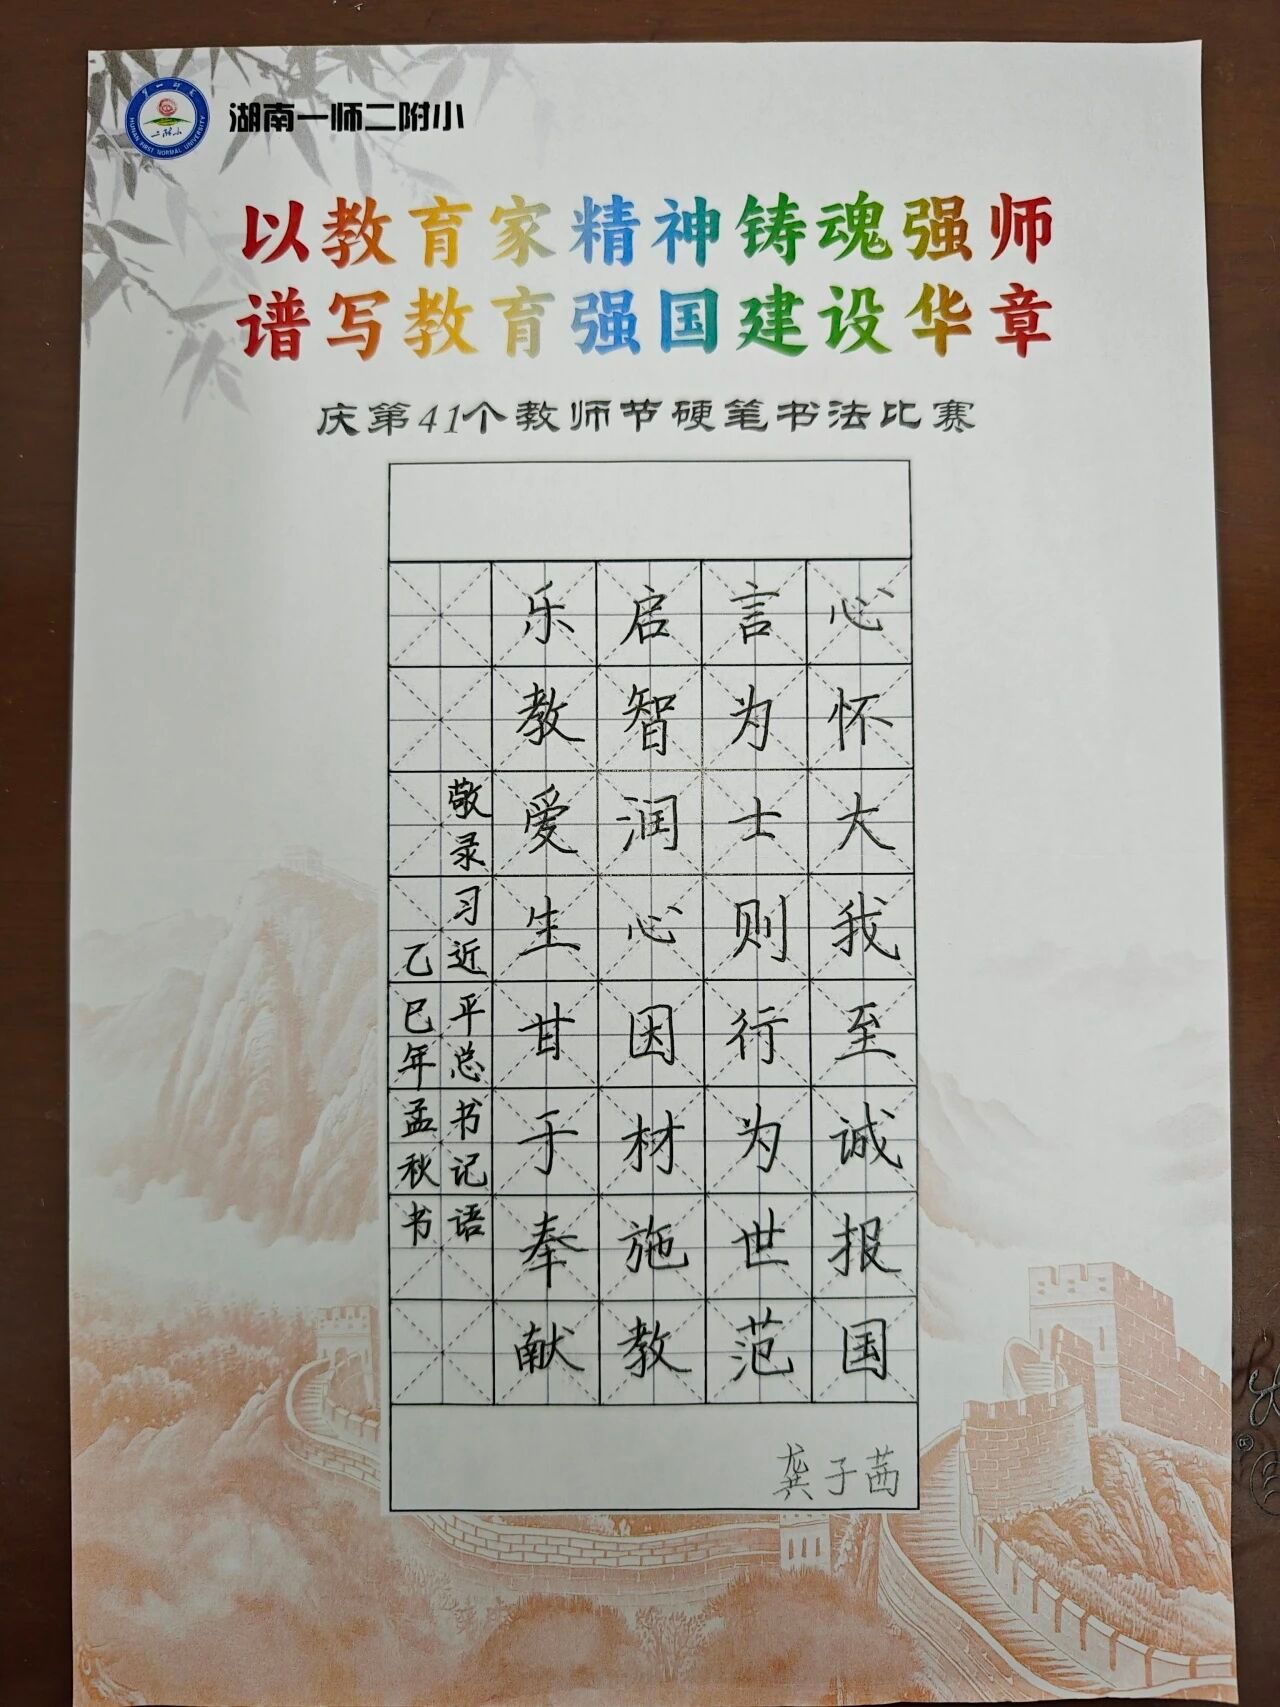 湖南一师二附小
以教育家精神铸魂强师
谱写教育强国建设华章
庆第41个教师节硬笔书法比赛
心怀大我至诚报国
言为士则行为世范
启智润心因材施教
乐教爱生甘于奉献
敬录习近平总书记语
乙巳年孟秋书
龚子茜
二附小
HUNAN FIRST NORMAL UNIVERSITY